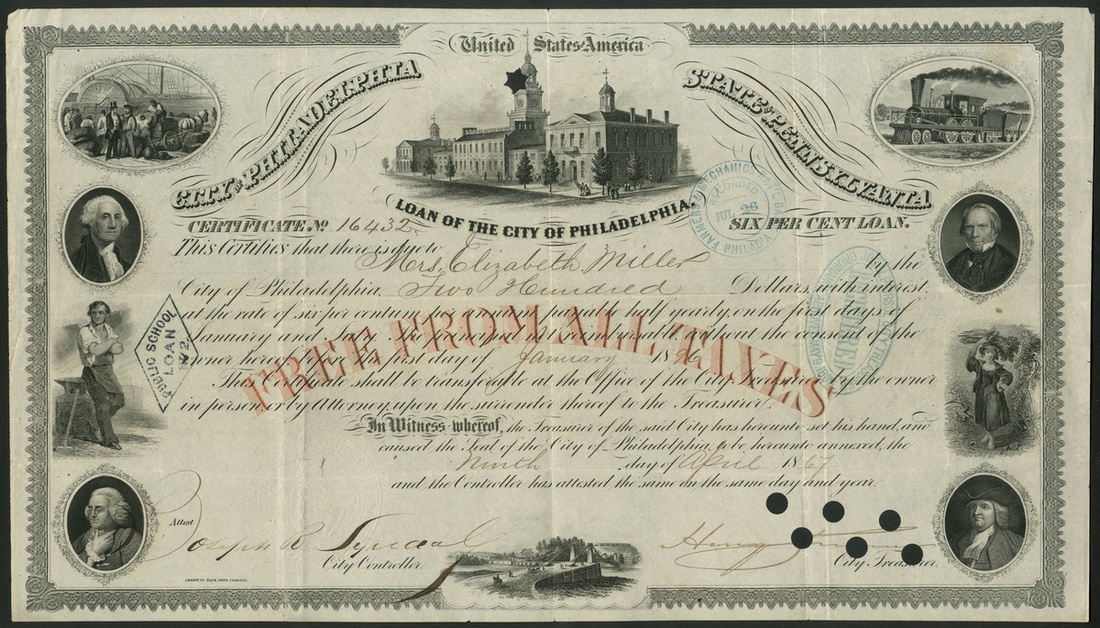 United States America
CITY OF PHILADELPHIA
STATE OF PENNSYLVANIA
LOAN OF THE CITY OF PHILADELPHIA
CERTIFICATE No. 16432
SIX PER CENT LOAN.
FARMERS MECHANICS NAT'L B
RECORDED
JUL 26
PHILADA
This Certifies that there is due to Mrs. Elizabeth Miller by the
City of Philadelphia, Two Hundred Dollars, with interest,
at the rate of six per centum per annum, payable half yearly, on the first days of
January and July, the principal without the consent of the
owner hereof, before the first day of January 18 96
FREE FROM ALL TAXES
This Certificate shall be transferable at the Office of the City Treasurer, by the owner
in person or by Attorney, upon the surrender thereof to the Treasurer.
PUBLIC SCHOOL
LOAN
No. 2.
In Witness whereof, the Treasurer of the said City has hereunto set his hand, and
caused the Seal of the City of Philadelphia, to be hereunto annexed, the
Ninth day of April 1867
and the Controller has attested the same on the same day and year.
Attest
Joseph R
City Controller.
Henry
City Treasurer.
AMERICAN BANK NOTE COMPANY.